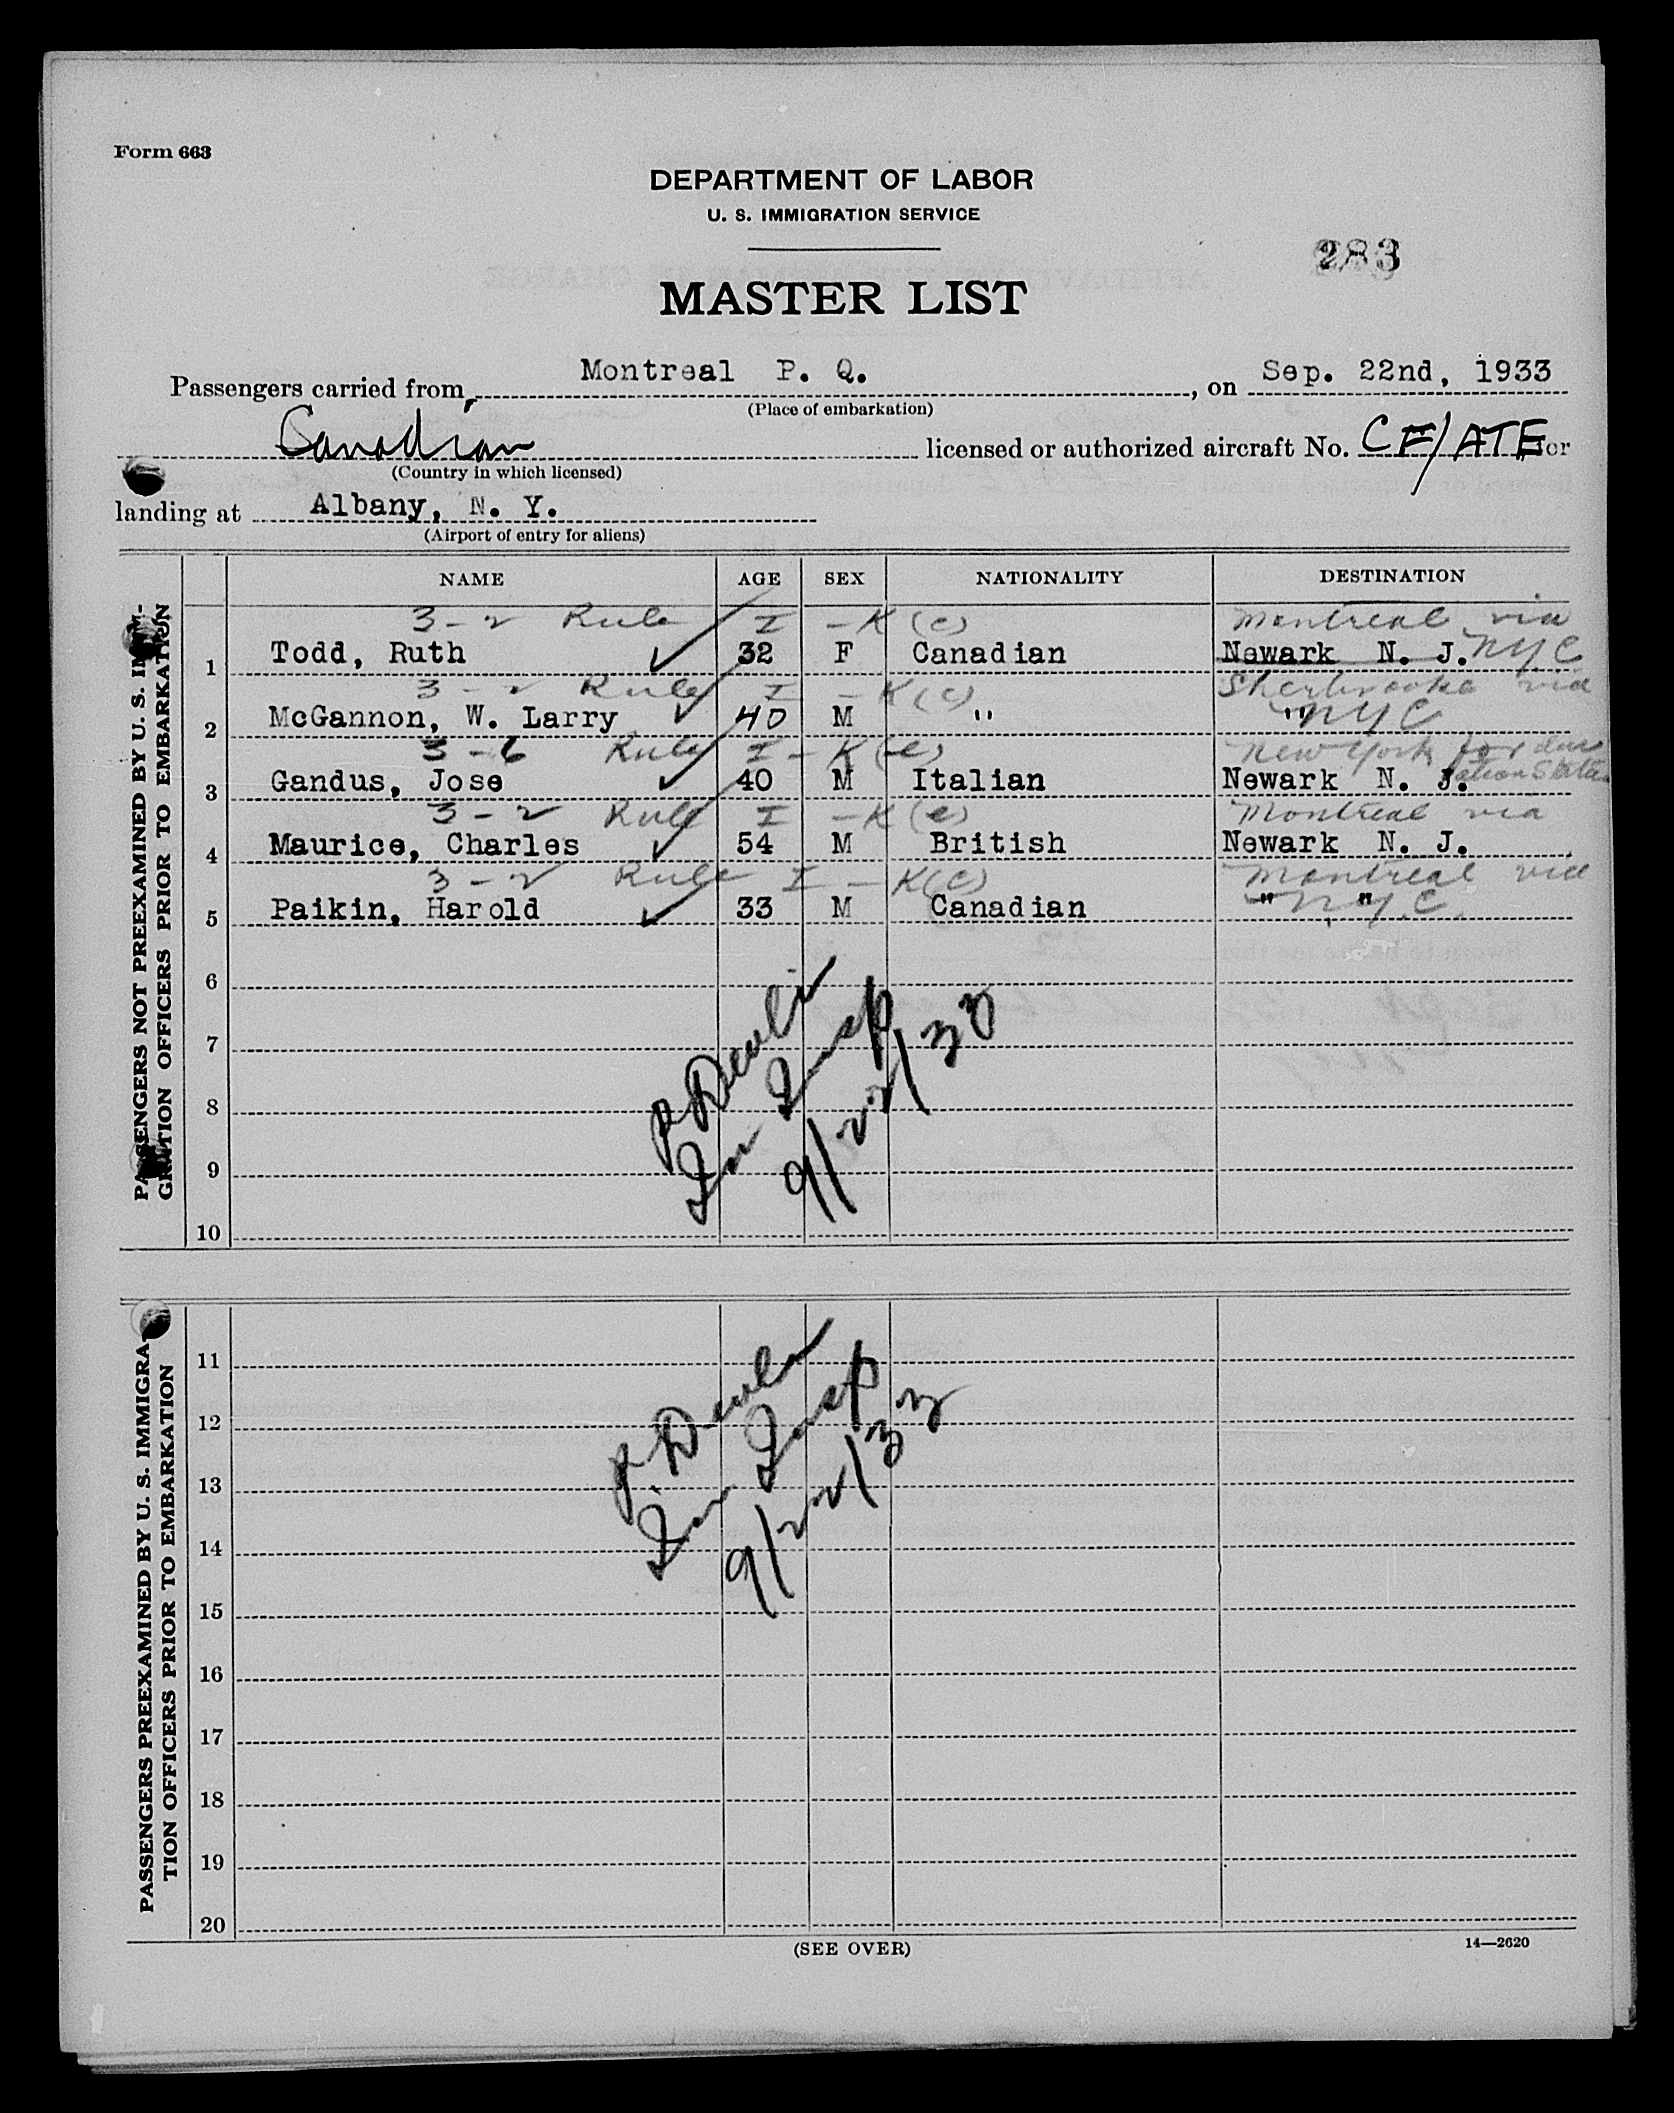 Form 663
DEPARTMENT OF LABOR
U. S. IMMIGRATION SERVICE
283
MASTER LIST
Passengers carried from Montreal P. Q., on Sep. 22nd, 1933
(Place of embarkation)
Canadian licensed or authorized aircraft No. CF/ATE for
(Country in which licensed)
landing at Albany, N. Y.
(Airport of entry for aliens)
PASSENGERS NOT PREEXAMINED BY U. S. IMMI-
GRATION OFFICERS PRIOR TO EMBARKATION
NAME AGE SEX NATIONALITY DESTINATION
3-2 Rule I - K (c) Montreal via
1 Todd, Ruth 32 F Canadian Newark N. J. NYC
3-2 Rule I - K (c) Sherbrooke via
2 McGannon, W. Larry 40 M " " NYC
3-6 Rule I - K (e) New York for
3 Gandus, Jose 40 M Italian Newark N. J.
3-2 Rule I - K (e) Montreal via
4 Maurice, Charles 54 M British Newark N. J.
3-2 Rule I - K (c) Montreal via
5 Paikin, Harold 33 M Canadian " " N.Y.C.
6
7
8
9
10
Imm Insp
9/22/33
PASSENGERS PREEXAMINED BY U. S. IMMIGRA-
TION OFFICERS PRIOR TO EMBARKATION
11
12
13
14
15
16
17
18
19
20
Imm Insp
9/22/33
(SEE OVER)
14—2620